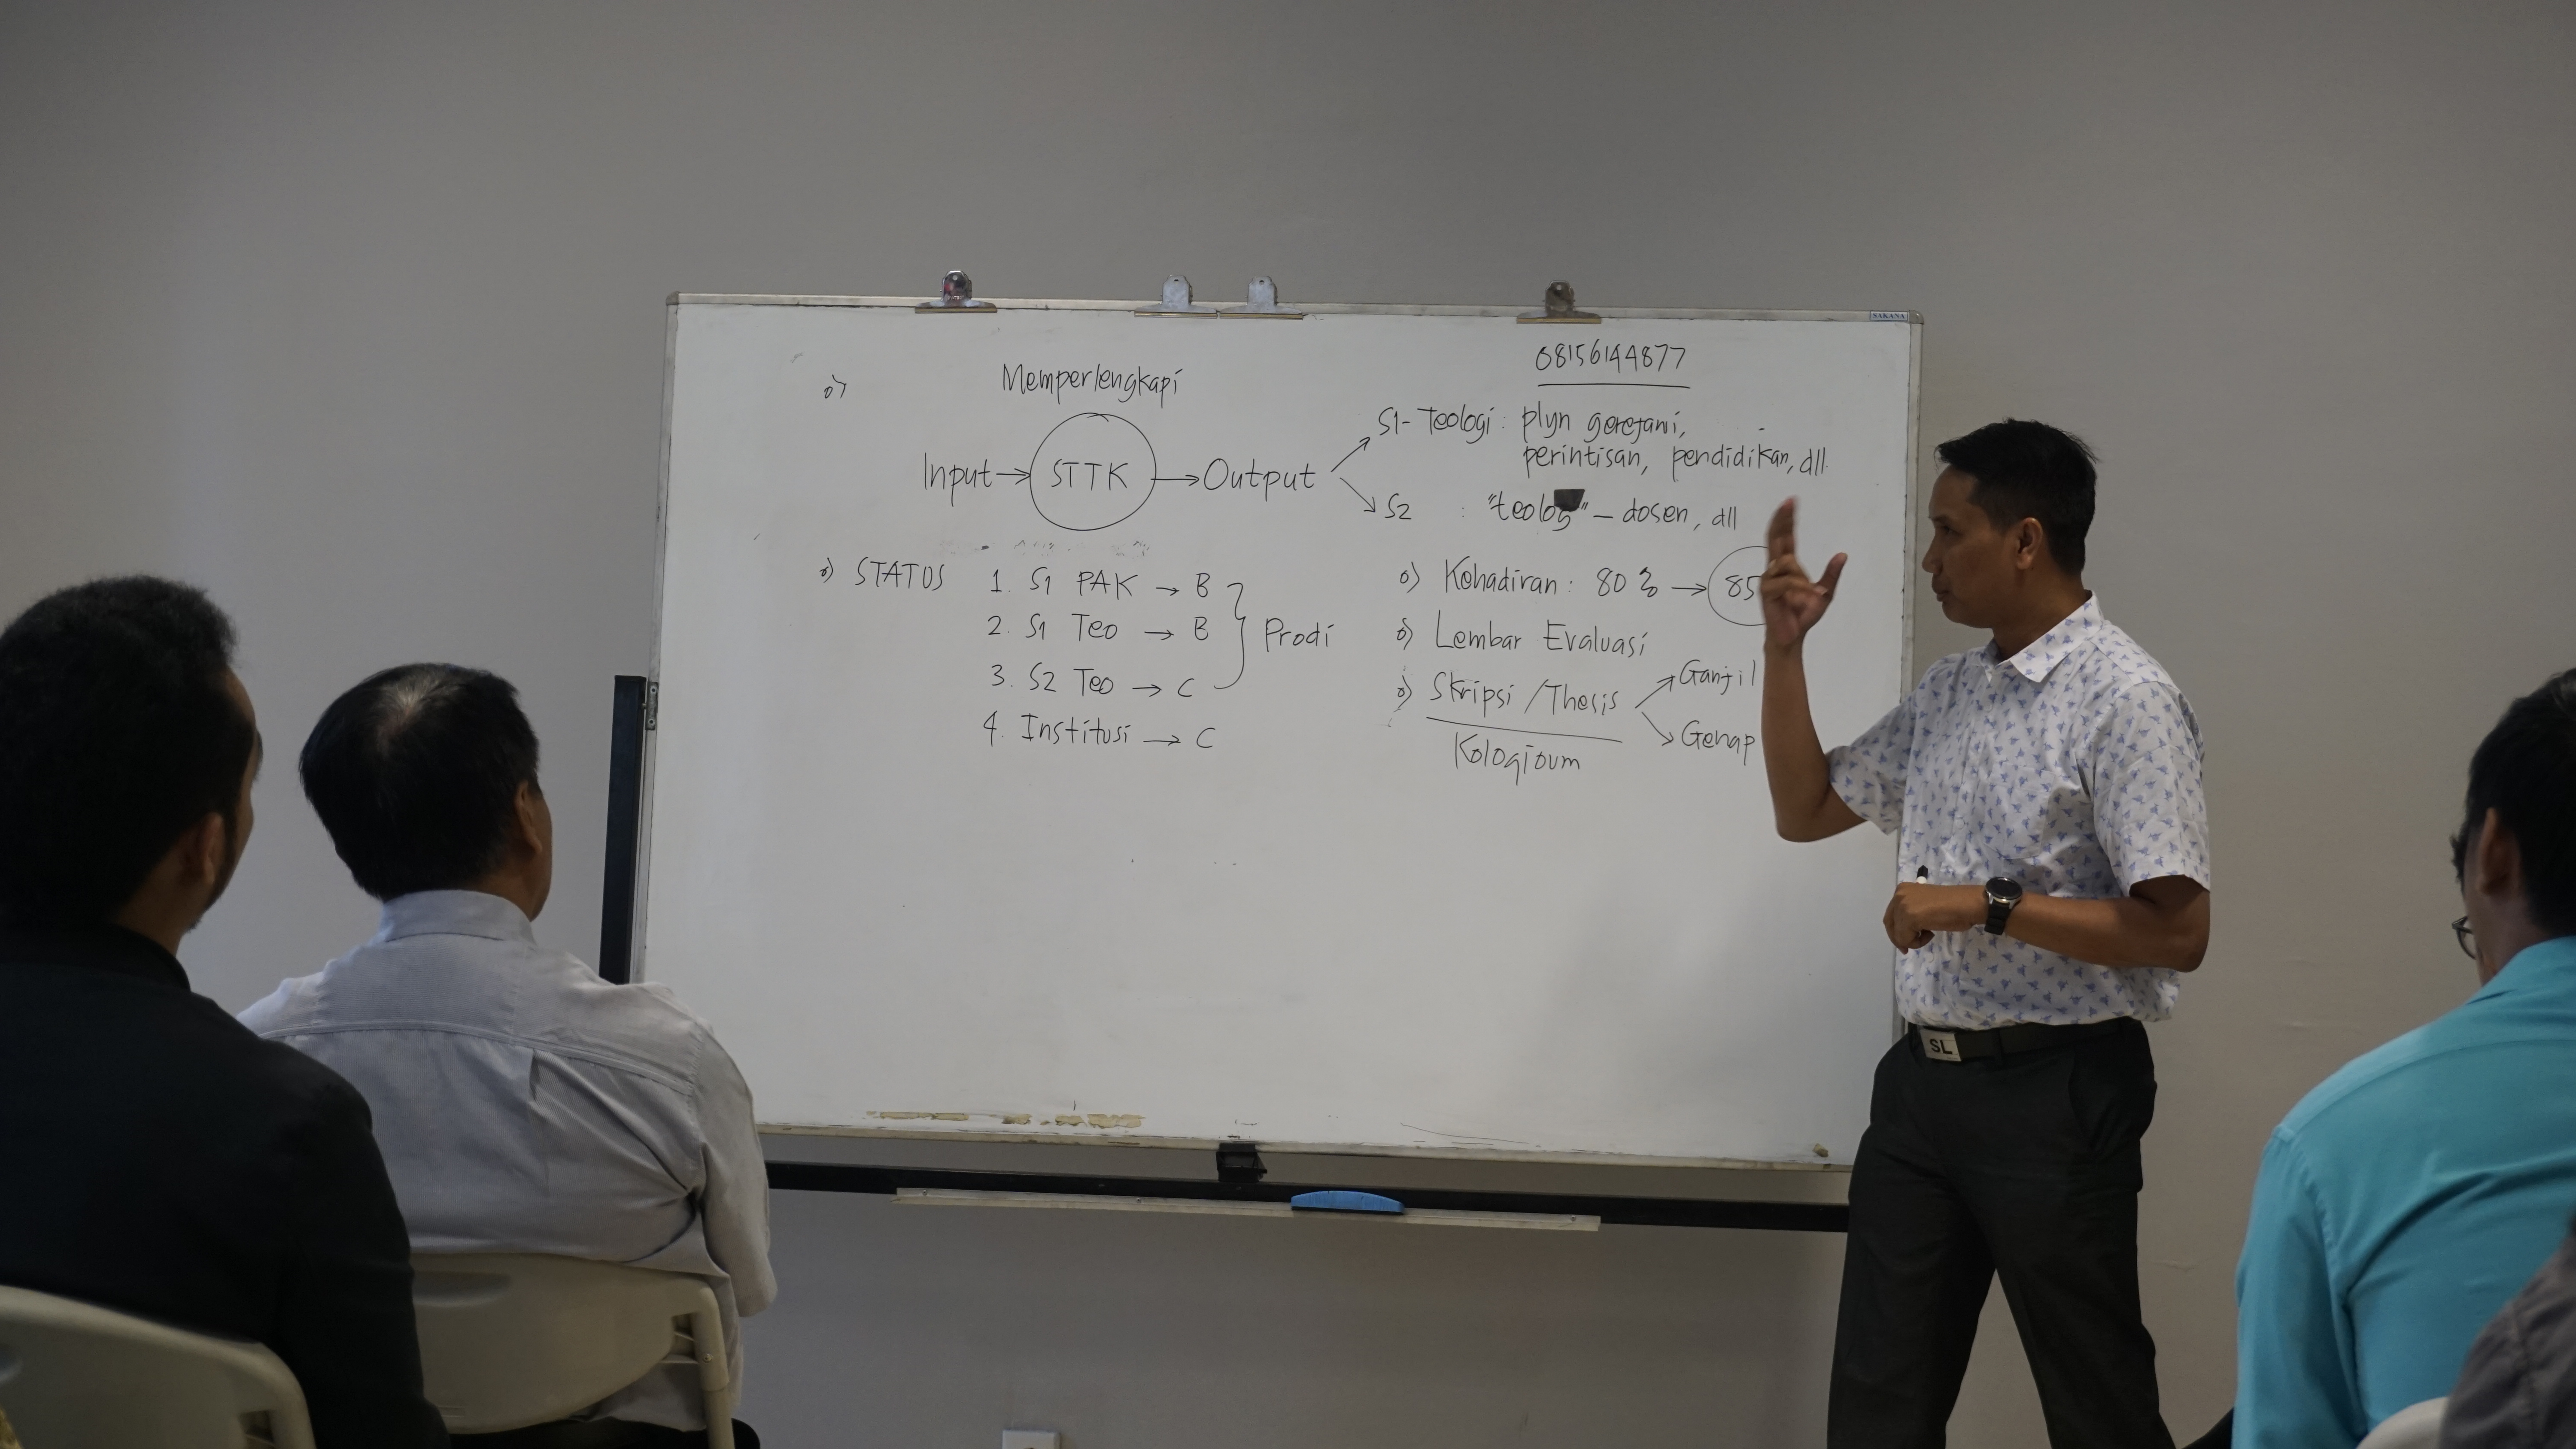 SAKANA
08156144877
o) Memperlengkapi
Input → STTK → Output
S1- Teologi : plyn gerejawi,
perintisan, pendidikan, dll.
S2 : "teolog" - dosen, dll
o) STATUS
1. S1 PAK → B
2. S1 Teo → B
3. S2 Teo → C
Prodi
4. Institusi → C
o) Kehadiran : 80 % → 85
o) Lembar Evaluasi
o) Skripsi / Thesis
Ganjil
Genap
Kologioum
SL